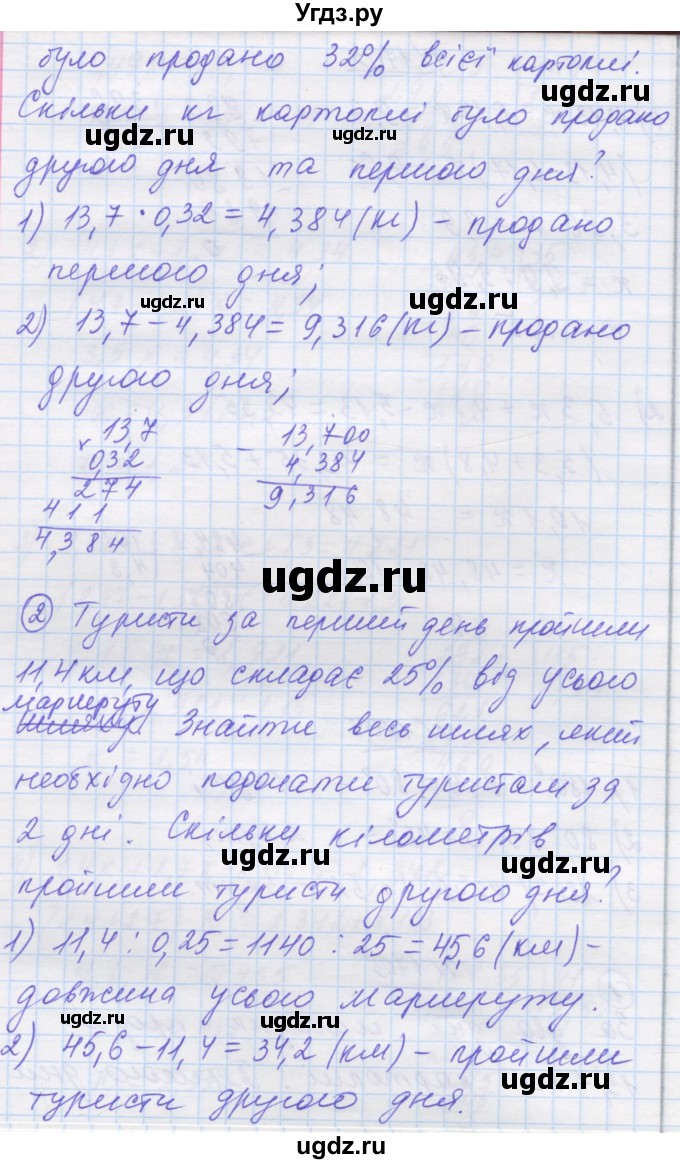 Угдз.ру
було продано 32% всієї картоплі.
Скільки кг картоплі було продано
другого дня та першого дня?
1) 13,7 · 0,32 = 4,384 (кг) – продано
першого дня;
2) 13,7 – 4,384 = 9,316 (кг) – продано
другого дня;
× 13,7
0,32
274
411
4,384
– 13,700
4,384
9,316
② Туристи за перший день пройшли
11,4 км, що складає 25% від усього
маршруту
шляху. Знайти весь шлях, який
необхідно подолати туристам за
2 дні. Скільки кілометрів
пройшли туристи другого дня?
1) 11,4 : 0,25 = 1140 : 25 = 45,6 (км) –
довжина усього маршруту.
2) 45,6 – 11,4 = 34,2 (км) – пройшли
туристи другого дня.
ugdz.ru
ugdz.ru
ugdz.ru
ugdz.ru
ugdz.ru
ugdz.ru
ugdz.ru
ugdz.ru
ugdz.ru
ugdz.ru
ugdz.ru
ugdz.ru
ugdz.ru
ugdz.ru